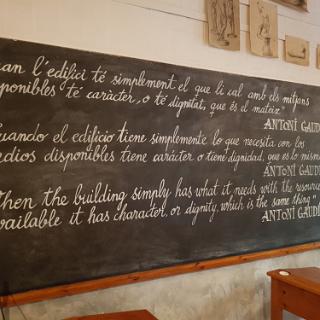 uan l'edifici té simplement el que li cal amb els mitjans
sponibles té caràcter, o té dignitat, que és el mateix"
ANTONÍ GAUDÍ
uando el edificio tiene simplemente lo que necesita con los
edios disponibles tiene carácter o tiene dignidad, que es lo mismo
ANTONÍ GAUDÍ
hen the building simply has what it needs with the resource
vailable it has character, or dignity, which is the same thing"
ANTONÍ GAUDÍ